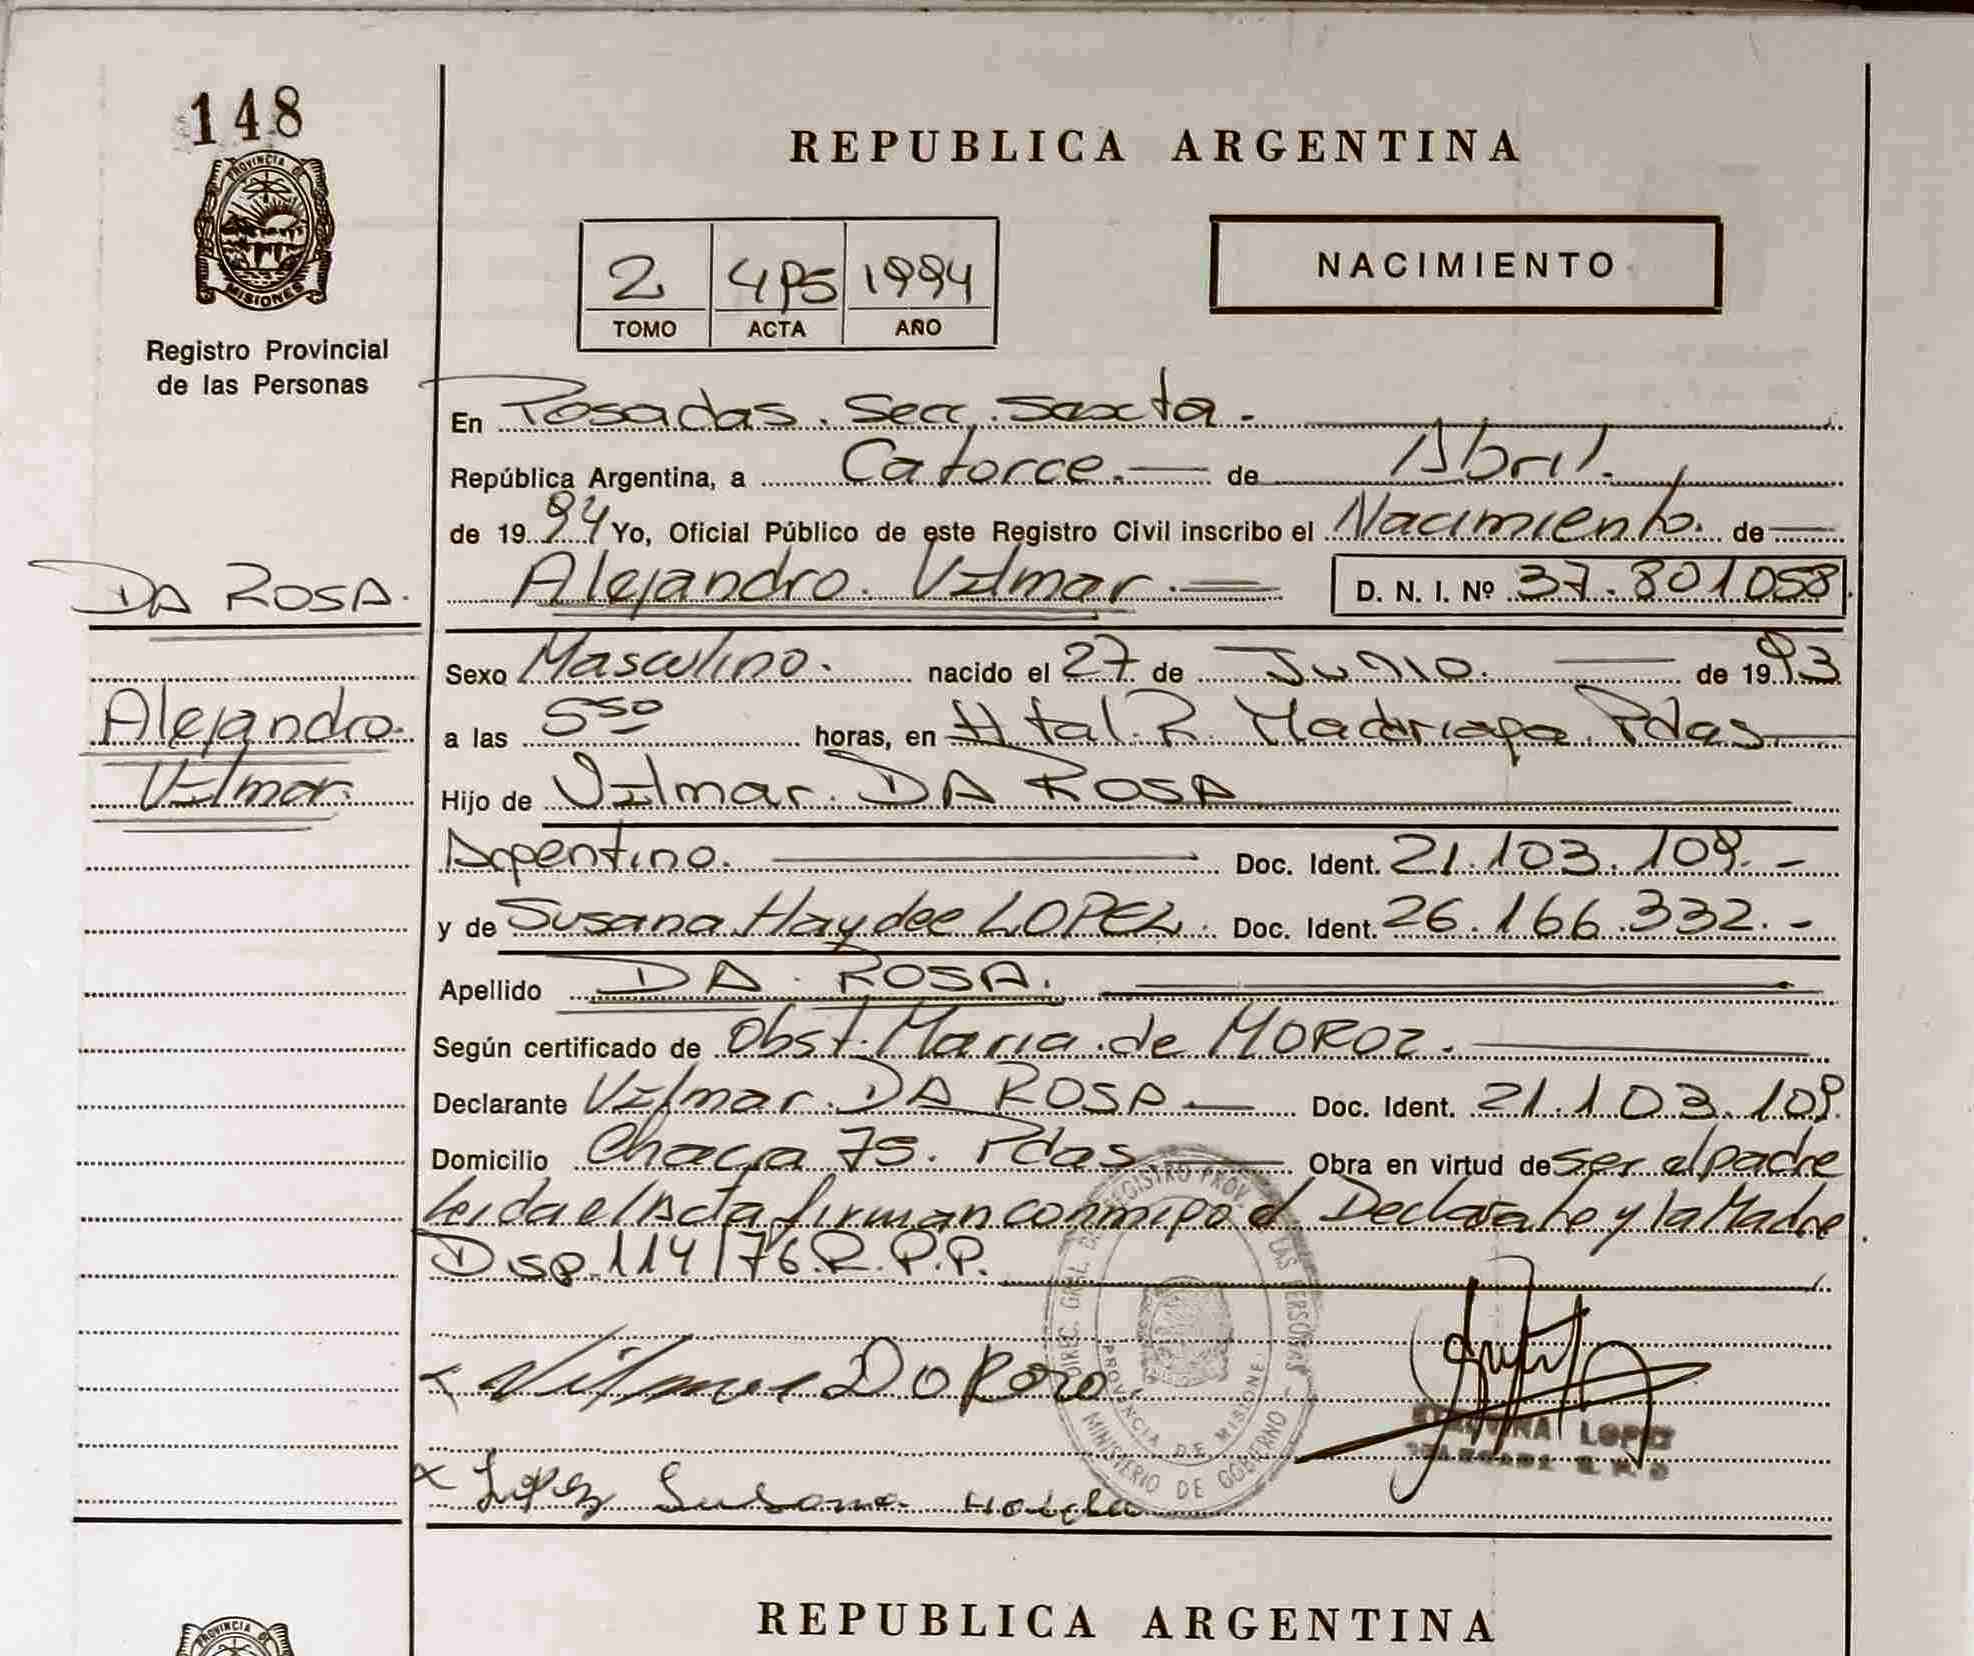 148
PROVINCIA DE
MISIONES
Registro Provincial
de las Personas
DA ROSA.
Alejandro.
Vilmar.
REPUBLICA ARGENTINA
NACIMIENTO
2 495 1994
TOMO ACTA AÑO
En Posadas. Secc. Sexta.
República Argentina, a Catorce. de Abril.
de 1994 Yo, Oficial Público de este Registro Civil inscribo el Nacimiento. de
Alejandro. Vilmar. D. N. I. Nº 37.801058
Sexo Masculino. nacido el 27 de Junio. de 1993
a las 5 50 horas, en Htal. R. Madariaga. Pdas.
Hijo de Vilmar. DA ROSA
Argentino. Doc. Ident. 21.103.109.-
y de Susana Haydee LOPEZ. Doc. Ident. 26.166.332.-
Apellido DA ROSA.
Según certificado de Obst. Maria de MOROZ.
Declarante Vilmar. DA ROSA Doc. Ident. 21.103.109.
Domicilio Chacra 75. Pdas. Obra en virtud de ser el padre
Leida el Acta firman conmigo el Declarante y la Madre
Disp. 114/76.R.P.P.
DIREC. GRAL. DE REGISTRO PROV. DE LAS PERSONAS
PROVINCIA DE MISIONES
MINISTERIO DE GOBIERNO
x Vilmar Da Rosa
LOPEZ
x Lopez Susana Haidee
REPUBLICA ARGENTINA
PROVINCIA DE